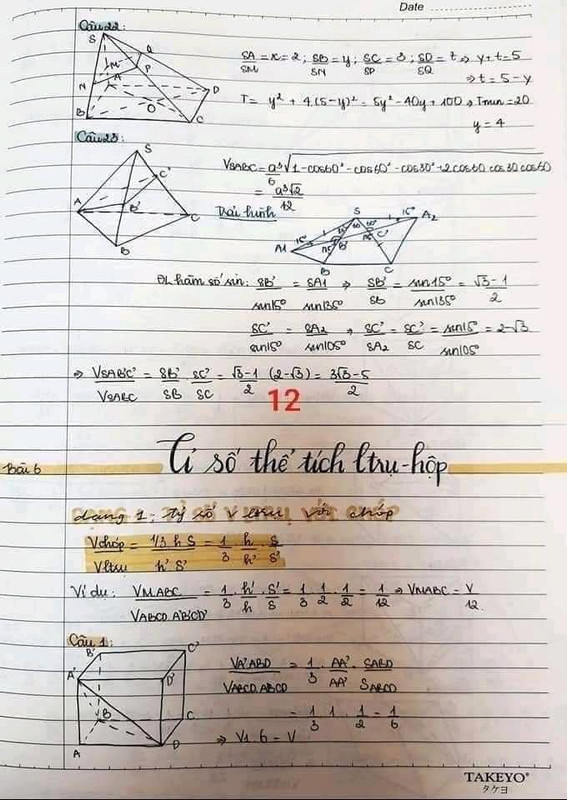 Date
Câu 22:
SA/SM = x = 2 ; SB/SN = y ; SC/SP = 3 ; SD/SQ = t ⇒ y + t = 5
⇒ t = 5 - y
T = y² + 4.(5-y)² = 5y² - 40y + 100 ⇒ Tmin = 20
y = 4
S
M
Q
P
N
A
D
B
O
C
Câu 23:
VSABC = a³/6 √1 - cos60² - cos60² - cos30² + 2cos60 cos30 cos60
= a³√2/12
Trải hình
S
C'
A
B'
C
B
S
15°
A2
A1
15°
B'
C'
B
C
ĐL hàm số sin: SB'/sin15° = SA1/sin135° ⇒ SB'/SB = sin15°/sin135° = √3 - 1/2
SC'/sin15° = SA2/sin105° ⇒ SC'/SA2 = SC'/SC = sin15/sin105 = 2-√3
⇒ VSAB'C'/VSABC = SB'/SB . SC'/SC = √3-1/2 (2-√3) = 3√3-5/2
12
Bài 6
Tỉ số thể tích ltrụ-hộp
dạng 1: Tỷ số V trụ với chóp
Vchóp/Vltru = 1/3 h S/h' S' = 1/3 . h/h' . S/S'
Ví dụ: VMABC/VABCD A'B'C'D' = 1/3 . h'/h . S'/S = 1/3 . 1/2 . 1/2 = 1/12 ⇒ VMABC = V/12
Câu 1:
VA'ABD/VABCD.ABCD = 1/3 . AA'/AA' . SABD/SABCD
= 1/3 . 1 . 1/2 = 1/6
⇒ V1.6 = V
B'
C'
A'
D'
B
C
A
D
TAKEYO®
タケヨ